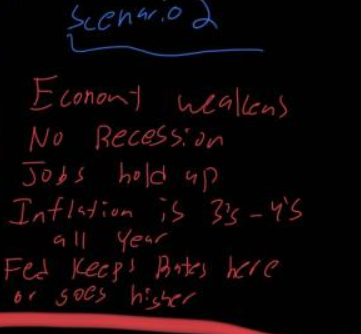 Scenario 2
Economy weakens
No Recession
Jobs hold up
Inflation is 3's-4's
all year
Fed Keeps Rates here
or goes higher